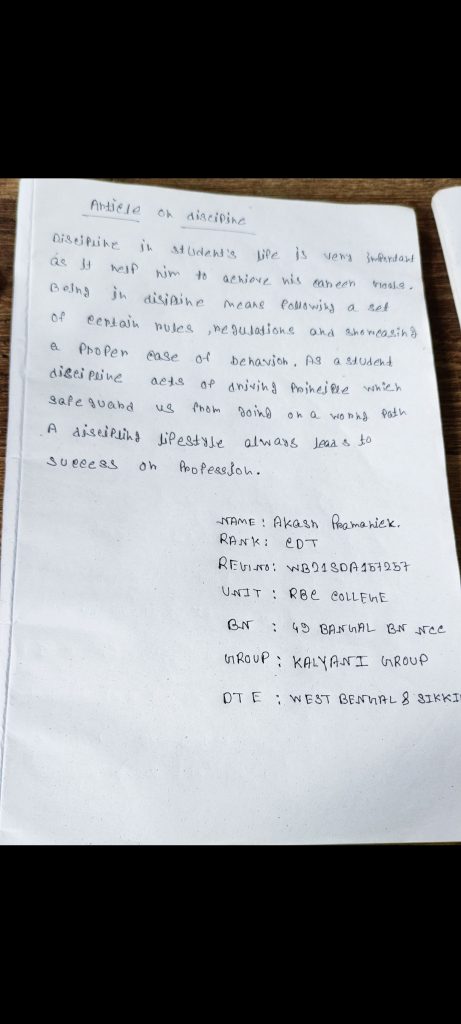 Article on disciplne
Discipline in student's life is very important
as it help him to achieve his career goals.
Being in disipline means following a set
of certain rules, regulations and showcasing
a proper case of behavior. As a student
discipline acts of driving principle which
safeguard us from going on a worng path
A discipling lifestyle always leads to
success on profession.
NAME : Akash Pramanick.
RANK : CDT
REGI.NO: WB21SDA157257
UNIT : RBC COLLEGE
BN : 49 BANGAL BN NCC
GROUP : KALYANI GROUP
DTE : WEST BENGAL & SIKKI